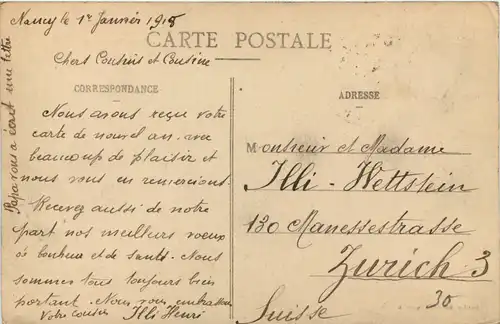 Nancy le 1er Janvier 1915
CARTE POSTALE
Chers Cousins et Cousine
CORRESPONDANCE
Nous avons reçu votre
carte de nouvel an avec
beaucoup de plaisir et
nous vous en remercions.
Recevez aussi de notre
part nos meilleurs voeux
de bonheur et de santé. Nous
sommes tous toujours bien
portant. Nous vous embrassons
Votre cousin Illi Henri
Papa vous a écrit une lettre
ADRESSE
Monsieur et Madame
Illi-Wettstein
130 Manessestrasse
Zurich 3
30
Suisse